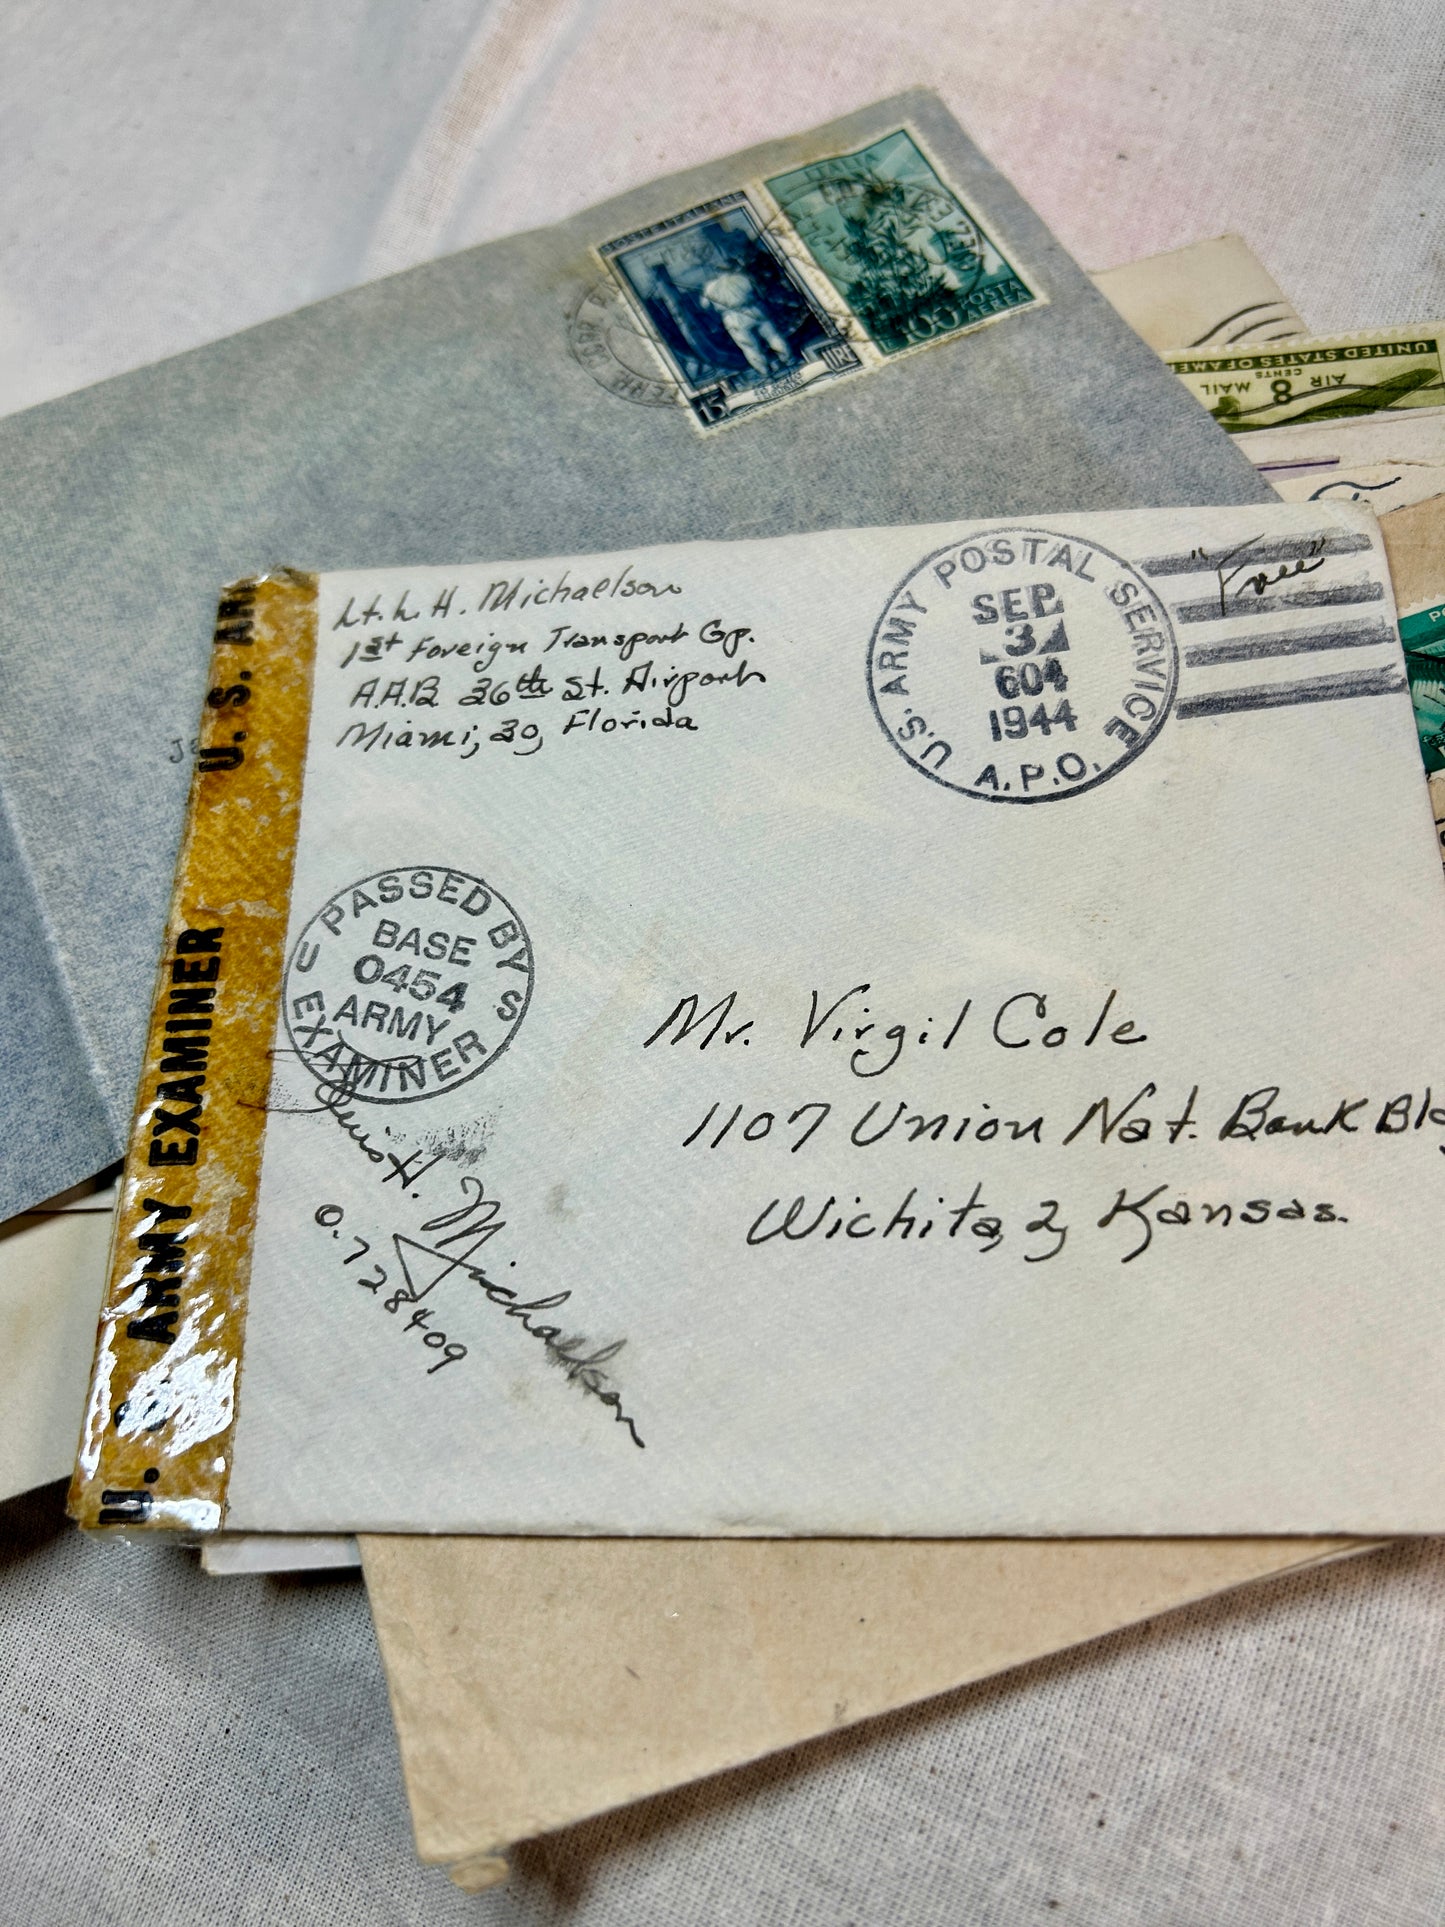 POSTE ITALIANE
15 LIRE
ITALIA
100
POSTA
AEREA
UNITED STATES OF AMER
AIR 8 MAIL
CENTS
Lt. L. H. Michaelson
1st Foreign Transport Gp.
A.A.B 36th St. Airport
Miami, 30, Florida
U.S. ARMY POSTAL SERVICE
SEP
3
604
1944
A.P.O.
"Free"
U. S. ARMY EXAMINER U. S. AR
PASSED BY
BASE
0454
ARMY
U S
EXAMINER
Mr. Virgil Cole
1107 Union Nat. Bank Bldg
Wichita, 2, Kansas.
Lewis H. Michaelson
0.728409